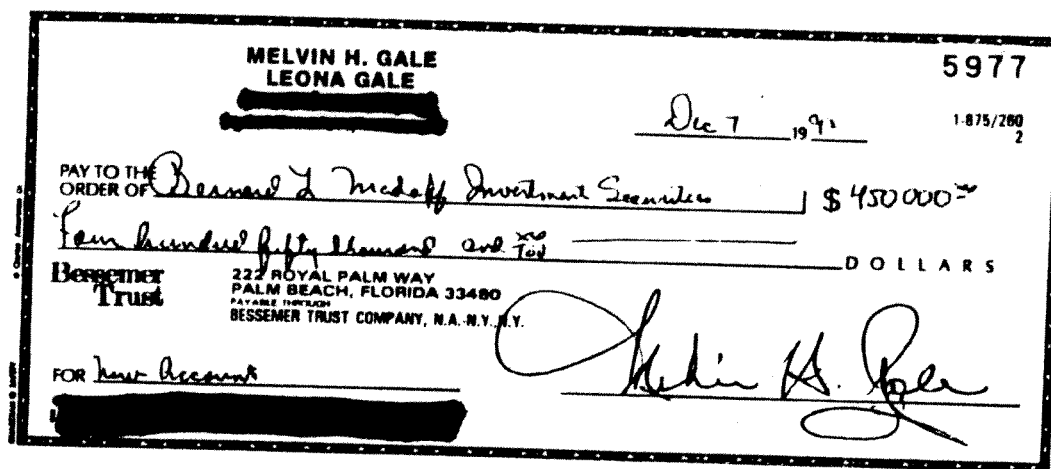 MELVIN H. GALE
LEONA GALE
5977
Dec 7 19 91
1-875/260
2
PAY TO THE
ORDER OF Bernard L Madoff Investment Securities $ 450000 xx
Four hundred fifty thousand and xx/100 DOLLARS
Bessemer
Trust
222 ROYAL PALM WAY
PALM BEACH, FLORIDA 33480
PAYABLE THROUGH
BESSEMER TRUST COMPANY, N.A. N.Y., N.Y.
FOR New Account
Melvin H. Gale